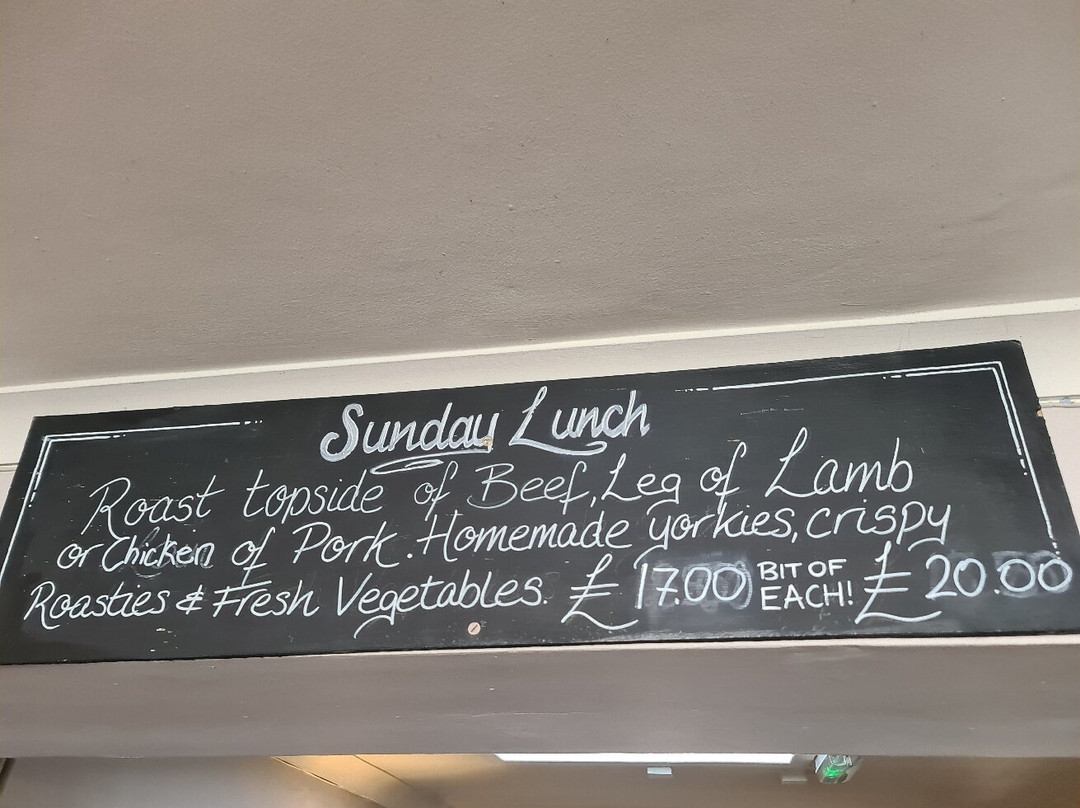 Sunday Lunch
Roast topside of Beef, Leg of Lamb
or Chicken of Pork. Homemade yorkies, crispy
Roasties & Fresh Vegetables. £17.00 BIT OF EACH! £20.00